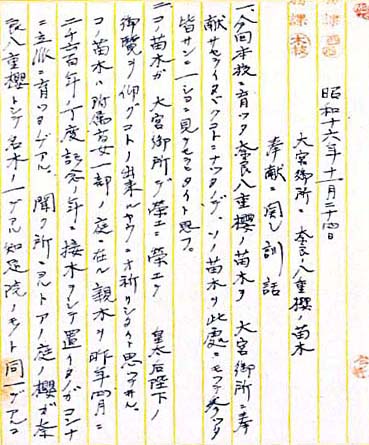 昭和十六年十一月二十四日
大宮御所ニ奈良八重櫻ノ苗木
奉献ニ関シ訓話
一、今回本校ニ育ツタ奈良八重櫻ノ苗木ヲ 大宮御所ニ奉
献サセテイタヾクコトニナツタノデ、ソノ苗木ヲ此處ニモツテ参ツタ
皆サンニ一ショニ見テモラヒタイト思フ。
二、コノ苗木ガ 大宮御所デ榮エニ榮エテ 皇太后陛下ノ
御覧ヲ仰グコトノ出来ルヤウニオ祈リシタイト思ツテヰル。
コノ苗木ハ附属高女一部ノ庭ニ在ル親木ヲ昨年四月ニ
二千六百年ノ丁度記念ノ年ニ接木ヲシテ置イタノガコンナ
ニ立派ニ育ツタノデアル。聞ク所ニヨルトアノ庭ノ櫻ガ奈
良八重櫻トシテ名木ノ一デアル知足院ノモノト同一デアルコ